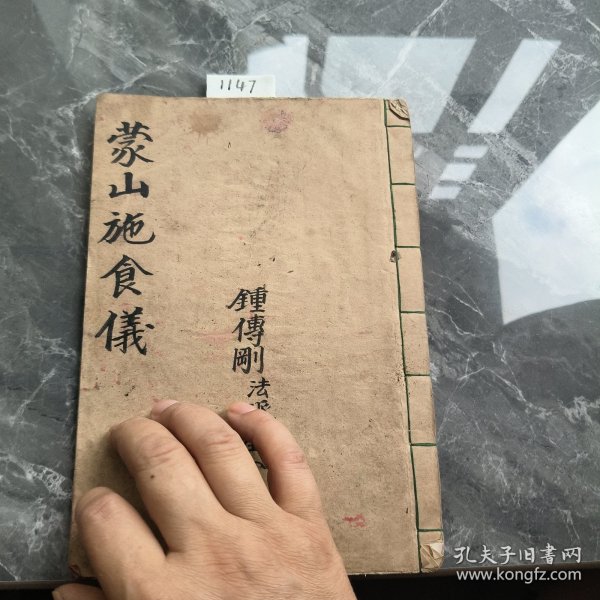 1147
蒙山施食儀
鍾傳剛法派
孔夫子旧书网
www.kongfz.com